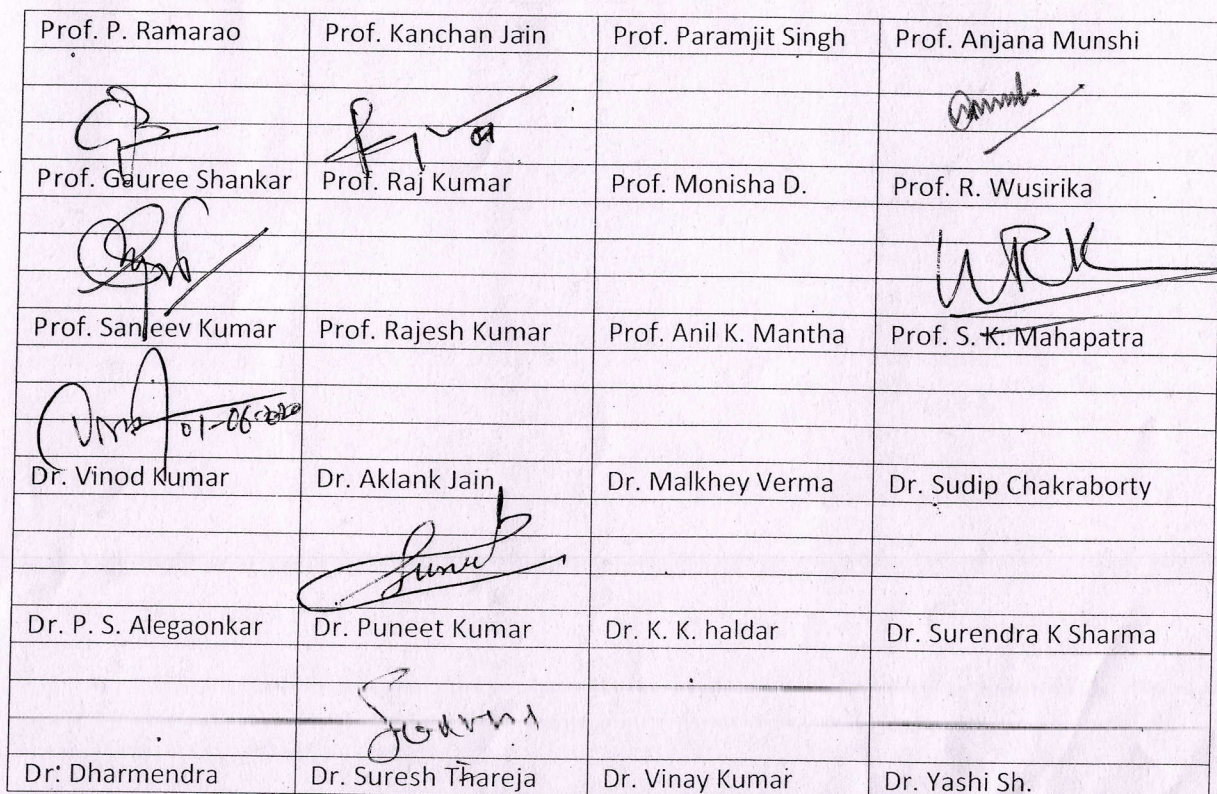 Prof. P. Ramarao Prof. Kanchan Jain Prof. Paramjit Singh Prof. Anjana Munshi
Prof. Gauree Shankar Prof. Raj Kumar Prof. Monisha D. Prof. R. Wusirika
WRK
Prof. Sanjeev Kumar Prof. Rajesh Kumar Prof. Anil K. Mantha Prof. S. K. Mahapatra
01-06-2020
Dr. Vinod Kumar Dr. Aklank Jain Dr. Malkhey Verma Dr. Sudip Chakraborty
Dr. P. S. Alegaonkar Dr. Puneet Kumar Dr. K. K. haldar Dr. Surendra K Sharma
Dr. Dharmendra Dr. Suresh Thareja Dr. Vinay Kumar Dr. Yashi Sh.